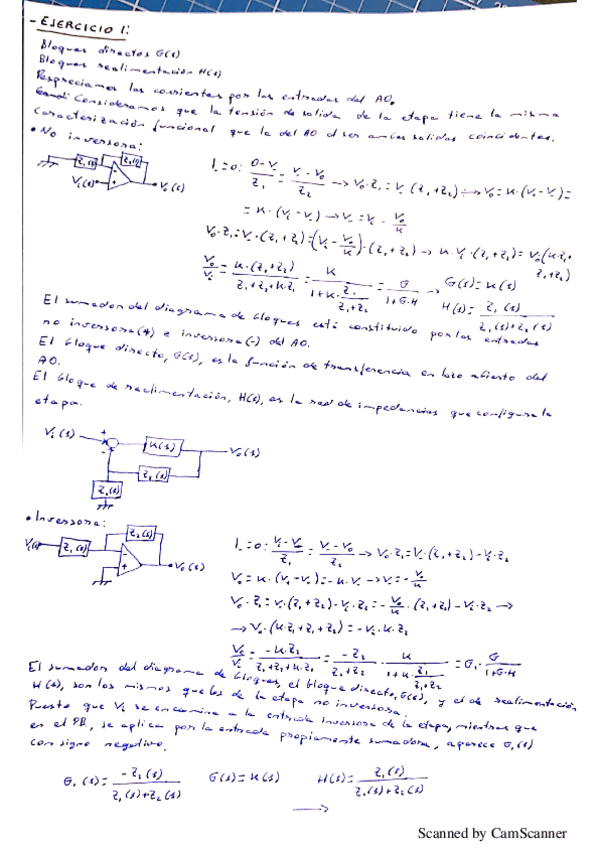 - EJERCICIO 1:
Bloques directos G(s)
Bloques realimentación H(s)
Despreciamos las corrientes por las entradas del AO.
Consideramos que la tensión de salida de la etapa tiene la misma
caracterización funcional que la del AO al ser ambas salidas coincidentes.
• No inversora:
Z₁(s) Z₂(s)
Vᵢ(s) V₀(s)
I₋=0: (0-V₋)/Z₁ = (V₋-V₀)/Z₂ → V₀·Z₁=V₋(Z₁+Z₂) → V₀=K·(V₊-V₋)=
= K·(Vᵢ-V₋) → V₋=Vᵢ-V₀/K
V₀·Z₁=V₋·(Z₁+Z₂)=(Vᵢ-V₀/K)·(Z₁+Z₂) → K·Vᵢ·(Z₁+Z₂)=V₀(K·Z₁+
Z₁+Z₂)
V₀/Vᵢ = K·(Z₁+Z₂)/(Z₁+Z₂+K·Z₁) = K/(1+K·Z₁/(Z₁+Z₂)) = G/(1+G·H) → G(s)=K(s)
H(s)=Z₁(s)/(Z₁(s)+Z₂(s))
El sumador del diagrama de bloques está constituido por las entradas
no inversora(+) e inversora(-) del AO.
El bloque directo, G(s), es la función de transferencia en lazo abierto del
AO.
El bloque de realimentación, H(s), es la red de impedancias que configura la
etapa.
Vᵢ(s) + - K(s) V₀(s)
Z₂(s)
Z₁(s)
• Inversora:
Vᵢ(s) Z₁(s) Z₂(s) V₀(s)
I₋=0: (Vᵢ-V₋)/Z₁ = (V₋-V₀)/Z₂ → V₀·Z₁=V₋(Z₁+Z₂)-Vᵢ·Z₂
V₀=K·(V₊-V₋)=-K·V₋ → V₋=-V₀/K
V₀·Z₁=V₋(Z₁+Z₂)-Vᵢ·Z₂=-V₀/K·(Z₁+Z₂)-Vᵢ·Z₂ →
→ V₀·(K·Z₁+Z₁+Z₂)=-Vᵢ·K·Z₂
V₀/Vᵢ = -K·Z₂/(Z₁+Z₂+K·Z₁) = -Z₂/(Z₁+Z₂) · K/(1+K·Z₁/(Z₁+Z₂)) = G₁·G/(1+G·H)
El sumador del diagrama de bloques, el bloque directo, G(s), y el de realimentación
H(s), son los mismos que los de la etapa no inversora.
Puesto que Vᵢ se encamina a la entrada inversora de la etapa, mientras que
en el PB, se aplica por la entrada propiamente sumadora, aparece G₁(s)
con signo negativo.
G₁(s)=-Z₂(s)/(Z₁(s)+Z₂(s)) G(s)=K(s) H(s)=Z₁(s)/(Z₁(s)+Z₂(s))
→
Scanned by CamScanner